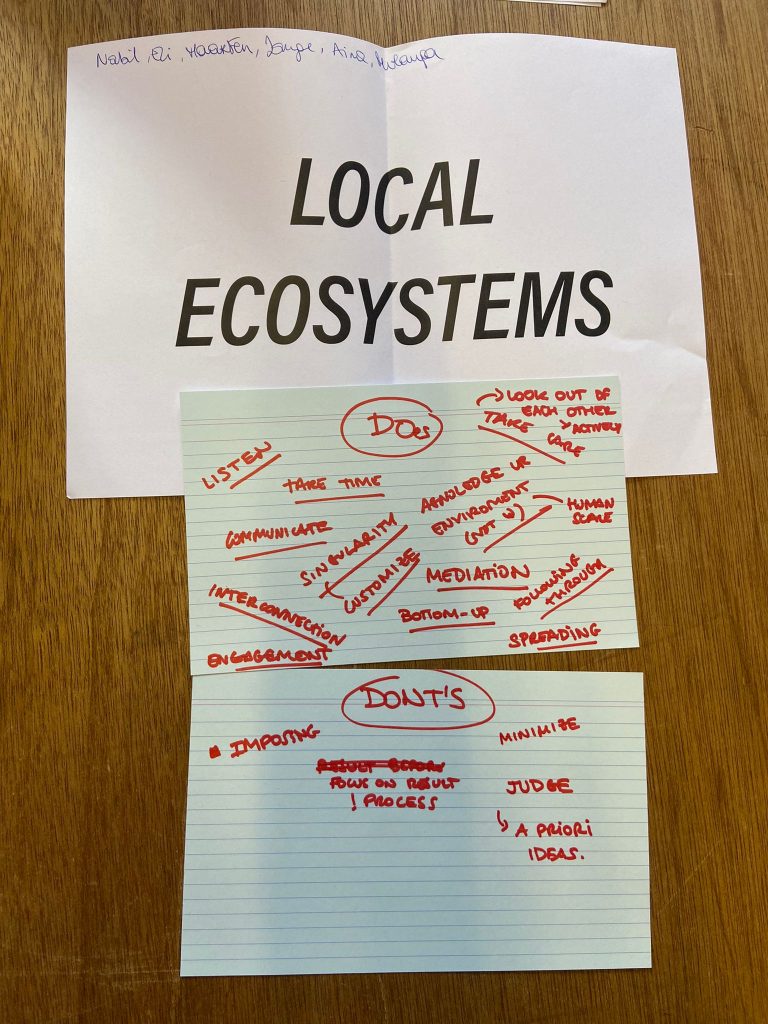 Nabil, Eli, Maarten, Aina,
LOCAL
ECOSYSTEMS
DOes
LOOK OUT OF
EACH OTHER
ACTIVELY
TAKE CARE
LISTEN
TAKE TIME
AKNOLEDGE UR
ENVIROMENT
(NOT U)
HUMAN
SCALE
COMMUNICATE
SINGULARITY
CUSTOMIZE
MEDIATION
FOLLOWING
THROUGH
INTERCONNECTION
BOTTOM-UP
ENGAGEMENT
SPREADING
DONT'S
IMPOSING
MINIMIZE
RESULT BEFORE
FOCUS ON RESULT
! PROCESS
JUDGE
A PRIORI
IDEAS.